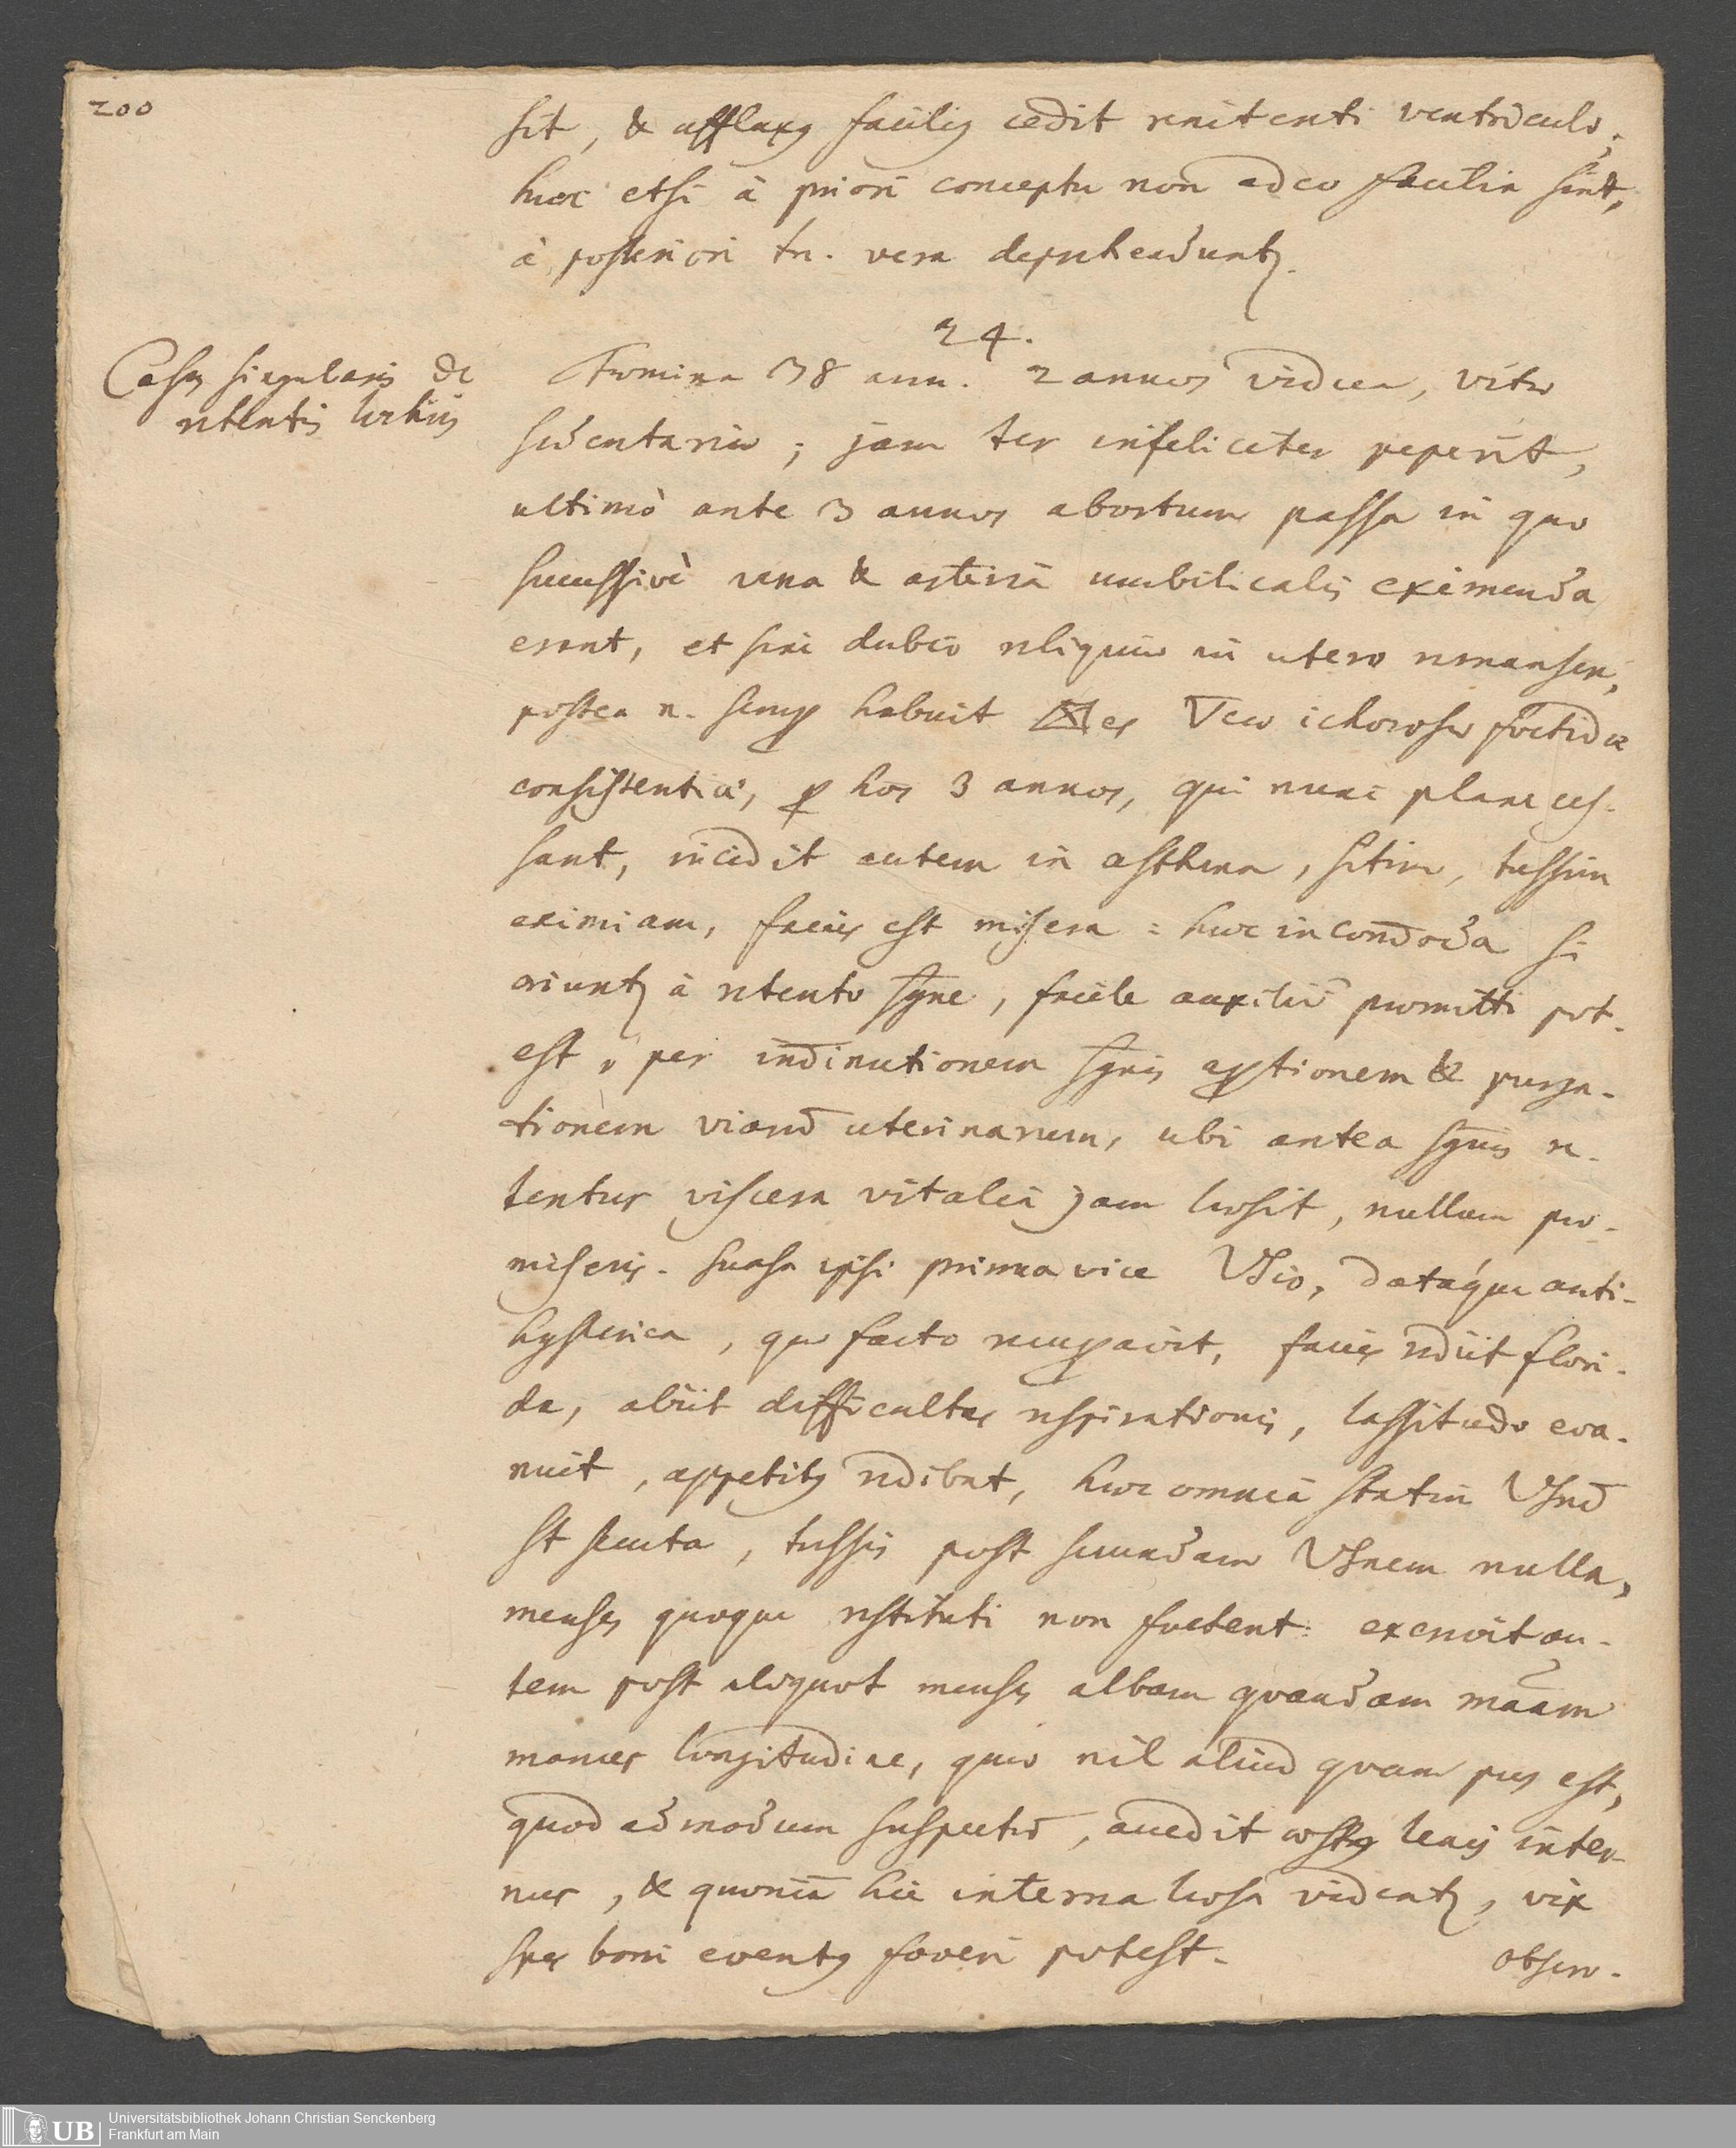 200
sit, & affluxus facilis cedit renitenti ventriculo;
haec etsi à priori conceptu non adeo facilia sint,
à posteriori tn. vera deprehendunt.
24.
Casus singularis de
retentis lochiis
Foemina 38 ann. 2 annos vidua, vitae
sedentariae; jam ter infeliciter peperit,
ultimò ante 3 annos abortum passa in quo
successivè vena & arteria umbilicalis eximenda
erant, et sine dubio reliquiae in utero remansere,
postea n. semp habuit es ichorosae foetidae
consistentiae, p hos 3 annos, qui nunc plane ces-
sant, incidit autem in asthma, sitim, tussim
eximiam, facies est misera: haec incommoda si
oriunt à retento sgne, facile auxiliū promitti pot-
est, per indinutionem sgnis aptionem & purga-
tionem viarū uterinarum, ubi antea sgnis re-
tentus viscera vitalia jam laesit, nullum pro-
miseris. Suasa ipsi prima vice VSio, dataque anti-
hysterica, quo facto recupavit, facies rediit flori-
da, abiit difficultas respirationis, lassitudo eva-
nuit, appetitus redibat, haec omnia statim VSnē
st secuta, tussis post secundam VSnem nulla,
menses quoque restituti non foetent: excrevit au-
tem post aliquot menses albam quandam māam
manus longitudine, quae nil aliud quam pus est,
quod admodum suspectū, accedit aestus lenis inter-
nus, & quoniā hic interna laesa vident, vix
spes boni eventus foveri potest.
Observ.
Universitätsbibliothek Johann Christian Senckenberg
Frankfurt am Main
UB